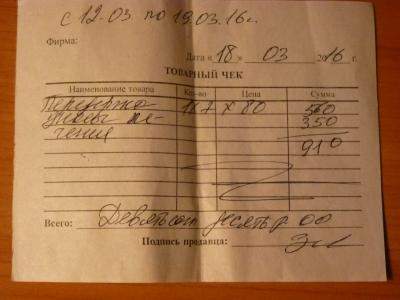 с 12.03 по 19.03.16г.
Фирма:
Дата « 18 » 03 2016 г.
ТОВАРНЫЙ ЧЕК
Наименование товара Кол-во Цена Сумма
Передержка х 80 560
350
910
Всего: Девятьсот десять р 00
Подпись продавца: